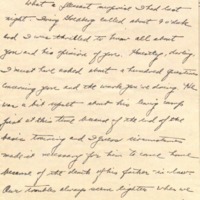 What a pleasant surprise I had last
night. Doug called about 9 o'clock
and I was thrilled to hear all about
you and his opinion of you. Honestly, darling
I must have asked about a hundred questions
concerning you and the work you're doing. He
was a bit upset about his being
at this time because of the end of the
basic training and I guess circumstances
made it necessary for him to come home
because of the death of his father-in-law.
Our troubles always seem lighter when we